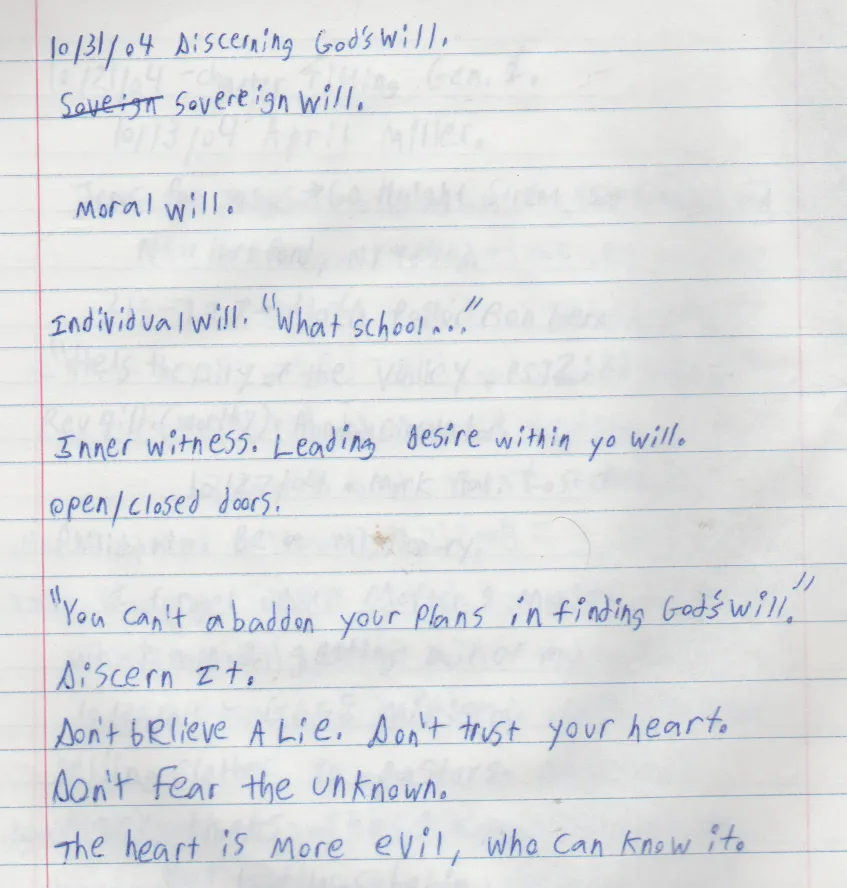 10/31/04 Discerning God's will.
Soveign Sovereign will.
Moral will.
Individual will. "What school..."
Inner witness. Leading desire within yo will.
open/closed doors.
"You can't abaddon your plans in finding God's will."
Discern It.
Don't bRlieve A Lie. Don't trust your heart.
Don't fear the unknown.
The heart is more evil, who can know it.